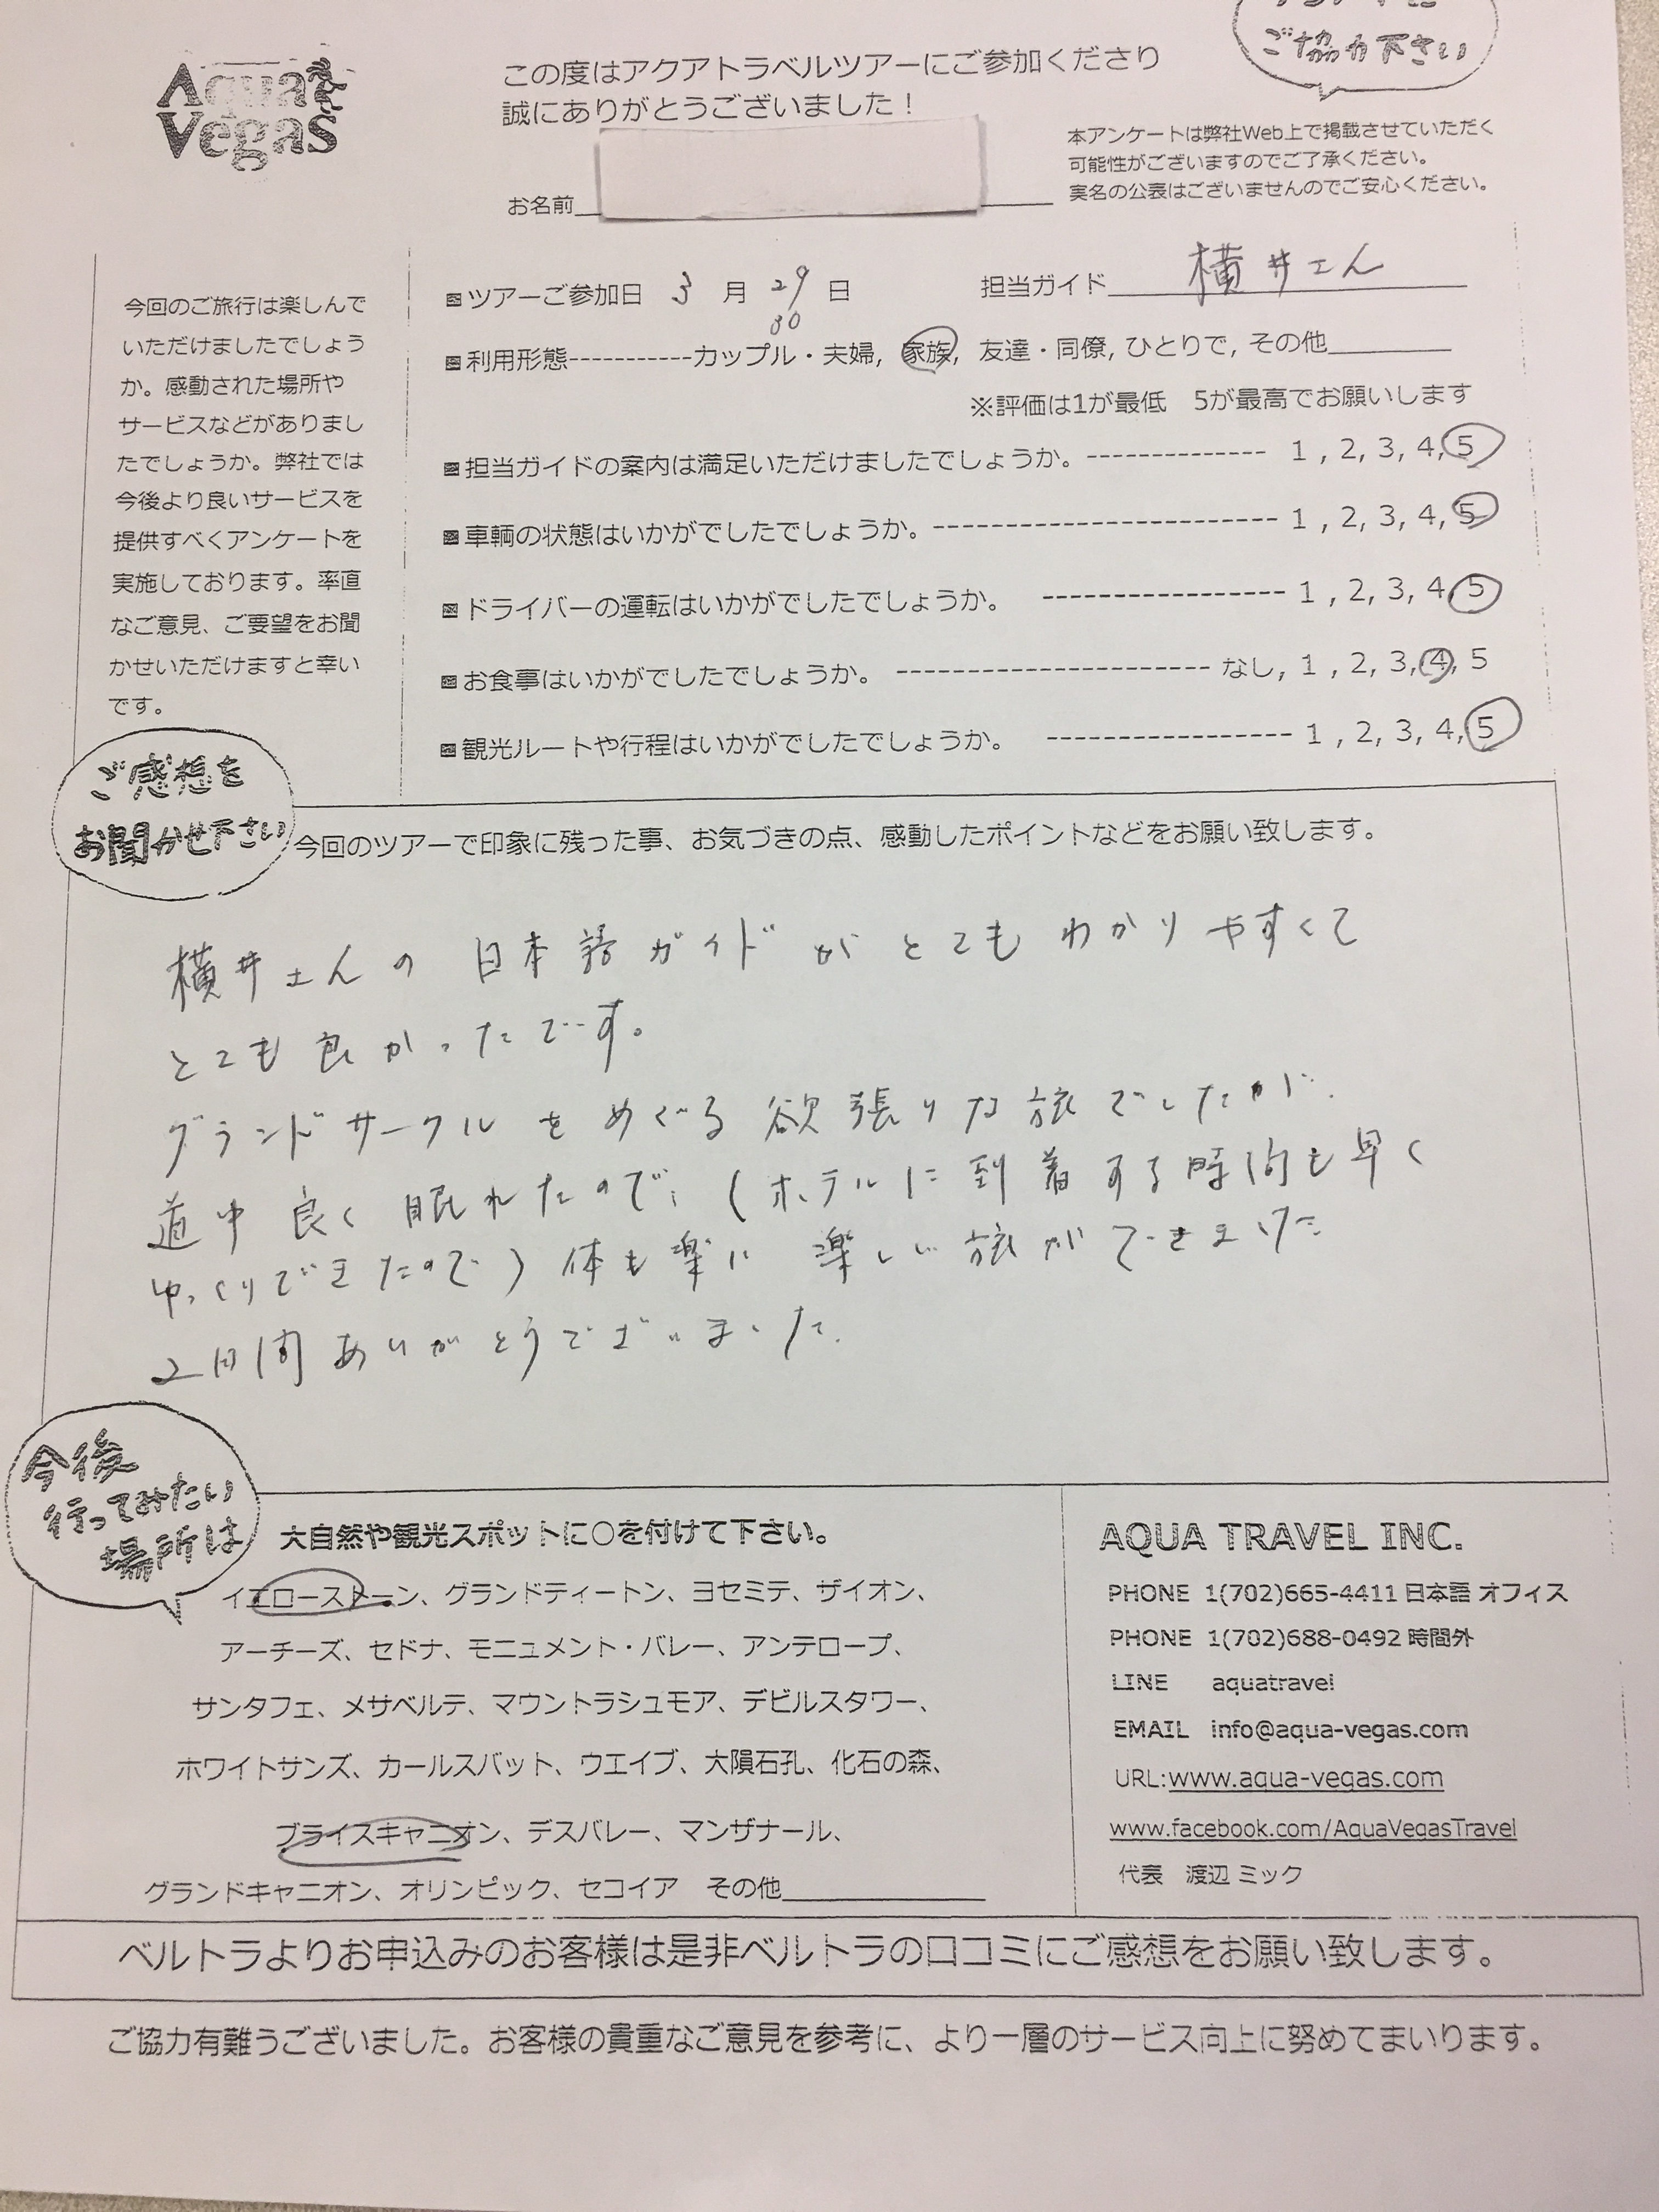 Aqua
Vegas
この度はアクアトラベルツアーにご参加くださり
誠にありがとうございました！
ご協力下さい
本アンケートは弊社Web上で掲載させていただく
可能性がございますのでご了承ください。
実名の公表はございませんのでご安心ください。
お名前
今回のご旅行は楽しんで
いただけましたでしょう
か。感動された場所や
サービスなどがありまし
たでしょうか。弊社では
今後より良いサービスを
提供すべくアンケートを
実施しております。率直
なご意見、ご要望をお聞
かせいただけますと幸い
です。
ツアーご参加日 3 月 29 日 担当ガイド 横井さん
30
利用形態-----------カップル・夫婦, 家族, 友達・同僚, ひとりで, その他
※評価は1が最低 5が最高でお願いします
担当ガイドの案内は満足いただけましたでしょうか。-------------- 1 , 2, 3, 4, 5
車輌の状態はいかがでしたでしょうか。--------------------------- 1 , 2, 3, 4, 5
ドライバーの運転はいかがでしたでしょうか。 ------------------ 1 , 2, 3, 4, 5
お食事はいかがでしたでしょうか。 ----------------------- なし, 1 , 2, 3, 4, 5
観光ルートや行程はいかがでしたでしょうか。 ------------------ 1 , 2, 3, 4, 5
ご感想を
お聞かせ下さい
今回のツアーで印象に残った事、お気づきの点、感動したポイントなどをお願い致します。
横井さんの 日本語ガイドが とても わかりやすくて
とても良かったです。
グランドサークルをめぐる欲張りな旅でしたが、
道中良く眠れたので、(ホテルに到着する時間も早く
ゆっくりできたので) 体も楽に 楽しい旅ができました
2日間ありがとうございました。
今後
行ってみたい
場所は
大自然や観光スポットに○を付けて下さい。
イエローストーン、グランドティートン、ヨセミテ、ザイオン、
アーチーズ、セドナ、モニュメント・バレー、アンテロープ、
サンタフェ、メサベルテ、マウントラシュモア、デビルスタワー、
ホワイトサンズ、カールスバット、ウエイブ、大隕石孔、化石の森、
ブライスキャニオン、デスバレー、マンザナール、
グランドキャニオン、オリンピック、セコイア その他
AQUA TRAVEL INC.
PHONE 1(702)665-4411 日本語 オフィス
PHONE 1(702)688-0492 時間外
LINE aquatravel
EMAIL info@aqua-vegas.com
URL:www.aqua-vegas.com
www.facebook.com/AquaVegasTravel
代表 渡辺 ミック
ベルトラよりお申込みのお客様は是非ベルトラの口コミにご感想をお願い致します。
ご協力有難うございました。お客様の貴重なご意見を参考に、より一層のサービス向上に努めてまいります。